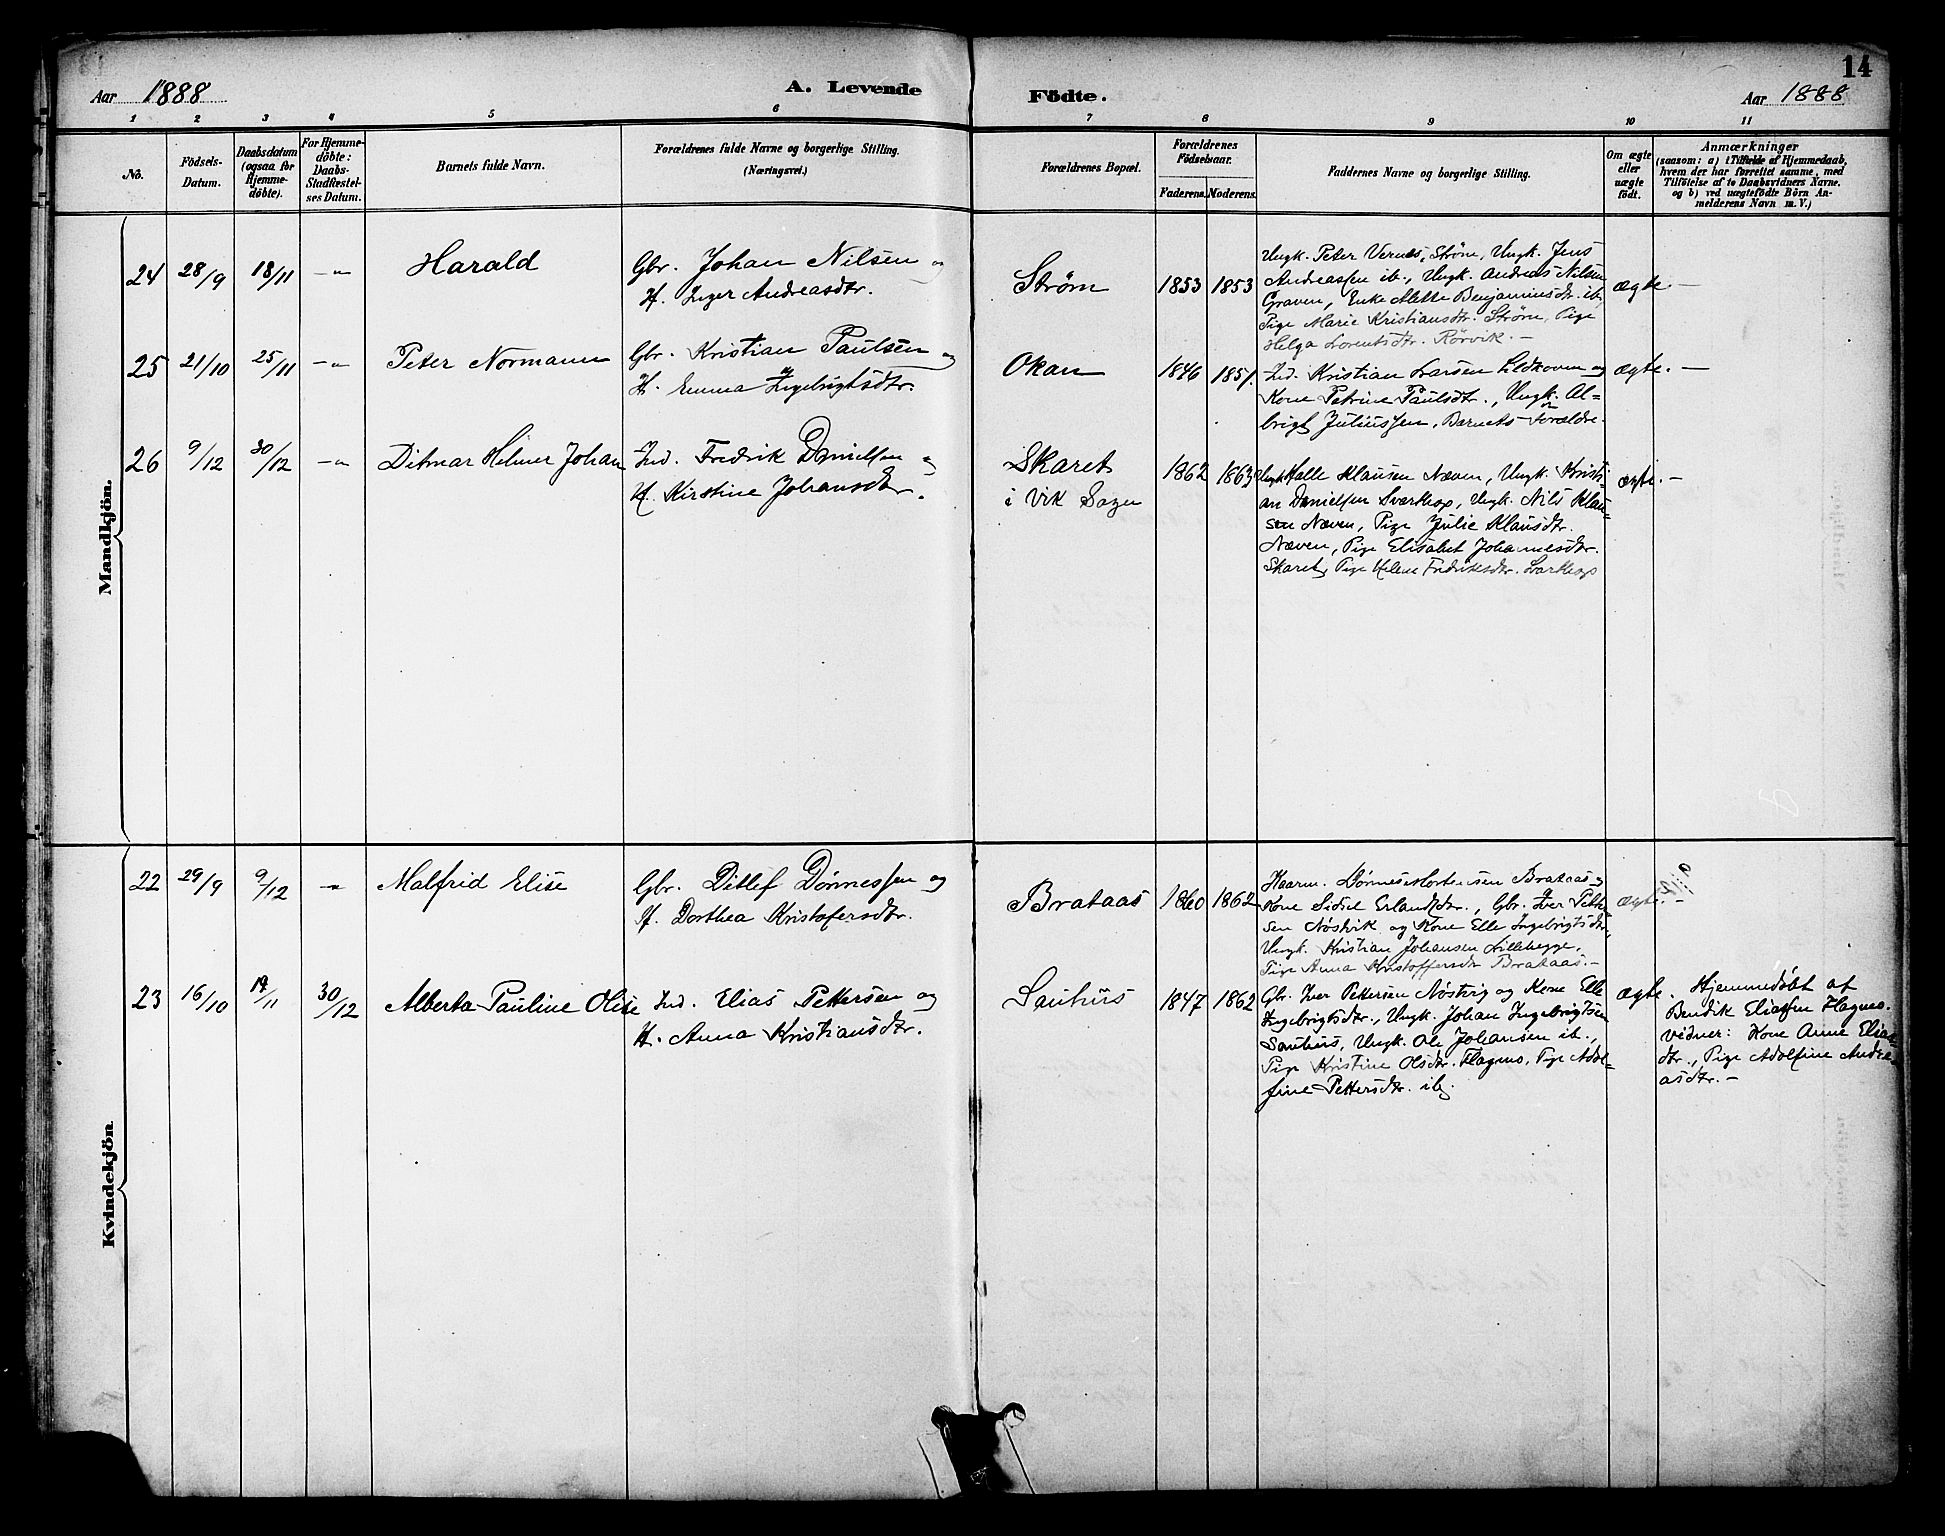 14
Aar 1888
A. Levende
Födte.
Aar 1888
1 2 3 4 5 6 7 8 9 10 11
No.
Födsels-
Datum.
Daabsdatum
(ogsaa for
Hjemme-
döbte).
For Hjemme-
döbte:
Daabs-
Stadfæstel-
ses Datum.
Barnets fulde Navn.
Forældrenes fulde Navne og borgerlige Stilling.
(Næringsvei.)
Forældrenes Bopæl.
Forældrenes
Födselsaar.
Faderens.
Moderens.
Faddernes Navne og borgerlige Stilling.
Om ægte
eller
uægte
födt.
Anmærkninger
(saasom: a) i Tilfælde af Hjemmedaab,
hvem der har forrettet samme, med
Tilföielse af to Daabsvidners Navne.
og b) ved uægtefödte Börn An-
melderens Navn m. V.)
Mandkjön.
24 28/9 18/11 -"-
Harald
Gbr. Johan Nilsen og
H. Inger Andreasdtr.
Strøm
1853 1853
Ungk. Peter Vernes, Strøm, Ungk. Jens
Andreassen ib., Ungk. Andreas Nilsen
Graven, Enke Mette Benjaminsdtr. ib,
Pige Marie Kristiansdtr. Strøm, Pige
Helga Lorentsdtr. Rörvik. -
ægte. -
25 21/10 25/11 -"-
Peter Normann
Gbr. Kristian Paulsen og
H. Emma Ingebrigtsdtr.
Okan
1846 1851.
Ind. Kristian Larsen Lidkoven og
Kone Petrine Paulsdtr., Ungk. Al-
brigt Juliussen, Barnets Forældre.
ægte. -
26 9/12 30/12 -"-
Ditmar Helmer Johan
Ind. Fredrik Danielsen og
H. Kirstine Johansdtr.
Skaret
i Vik Sogn
1862 1863
Ungk Halle Klausen Næven, Ungk. Kristi-
an Danielsen Svarthop, Ungk. Nils Klau-
sen Næven, Pige Julie Klausdtr.
Næven, Pige Elisabet Johannesdtr.
Skaret, Pige Helene Fredriksdtr. Svarthop
ægte. -
Kvindekjön.
22 29/9 9/12 -"-
Malfrid Elise
Gbr. Ditlef Dönnessen og
H. Dorthea Kristofersdtr.
Brataas
1860 1862
Kaarm. Dönnes Mortensen Brataas og
Kone Sidsel Erlandsdtr., Gbr. Iver Petter-
sen Nöstvik og Kone Elle Ingebrigtsdtr.,
Ungk. Kristian Johansen Lillehegge,
Pige Anna Kristoffersdtr Brataas. -
ægte. -
23 16/10 19/11 30/12
Alberta Pauline Olise
Ind. Elias Pettersen og
H. Anna Kristiansdtr.
Sauhus
1847 1862
Gbr. Iver Pettersen Nöstvig og Kone Elle
Ingebrigtsdtr., Ungk. Johan Ingebrigtsen
Sauhus, Ungk. Ole Johansen ib.,
Pige Kristine Olsdtr. Flagmo, Pige Adol-
fine Pettersdtr. ib.
ægte.
Hjemmedöbt af
Bendik Eliassen Flagmo.
vidner: Kone Anne Elias-
dtr., Pige Adolfine Andre-
asdtr. -